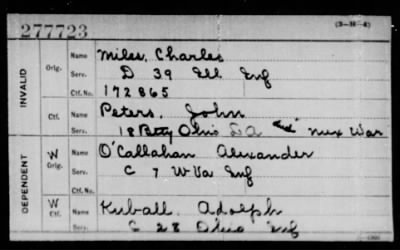 277723 (3-H-4)
INVALID
Orig. Name Miles, Charles
Serv. D 39 Ill Inf
Ctf. No. 172865
Ctf. Name Peters, John
Serv. 18 Batty Ohio L A and Mex War
DEPENDENT
W Orig. Name O'Callahan Alexander
Serv. C 7 W Va Inf
W Ctf. Name Kuball, Adolph
Serv. C 28 Ohio Inf